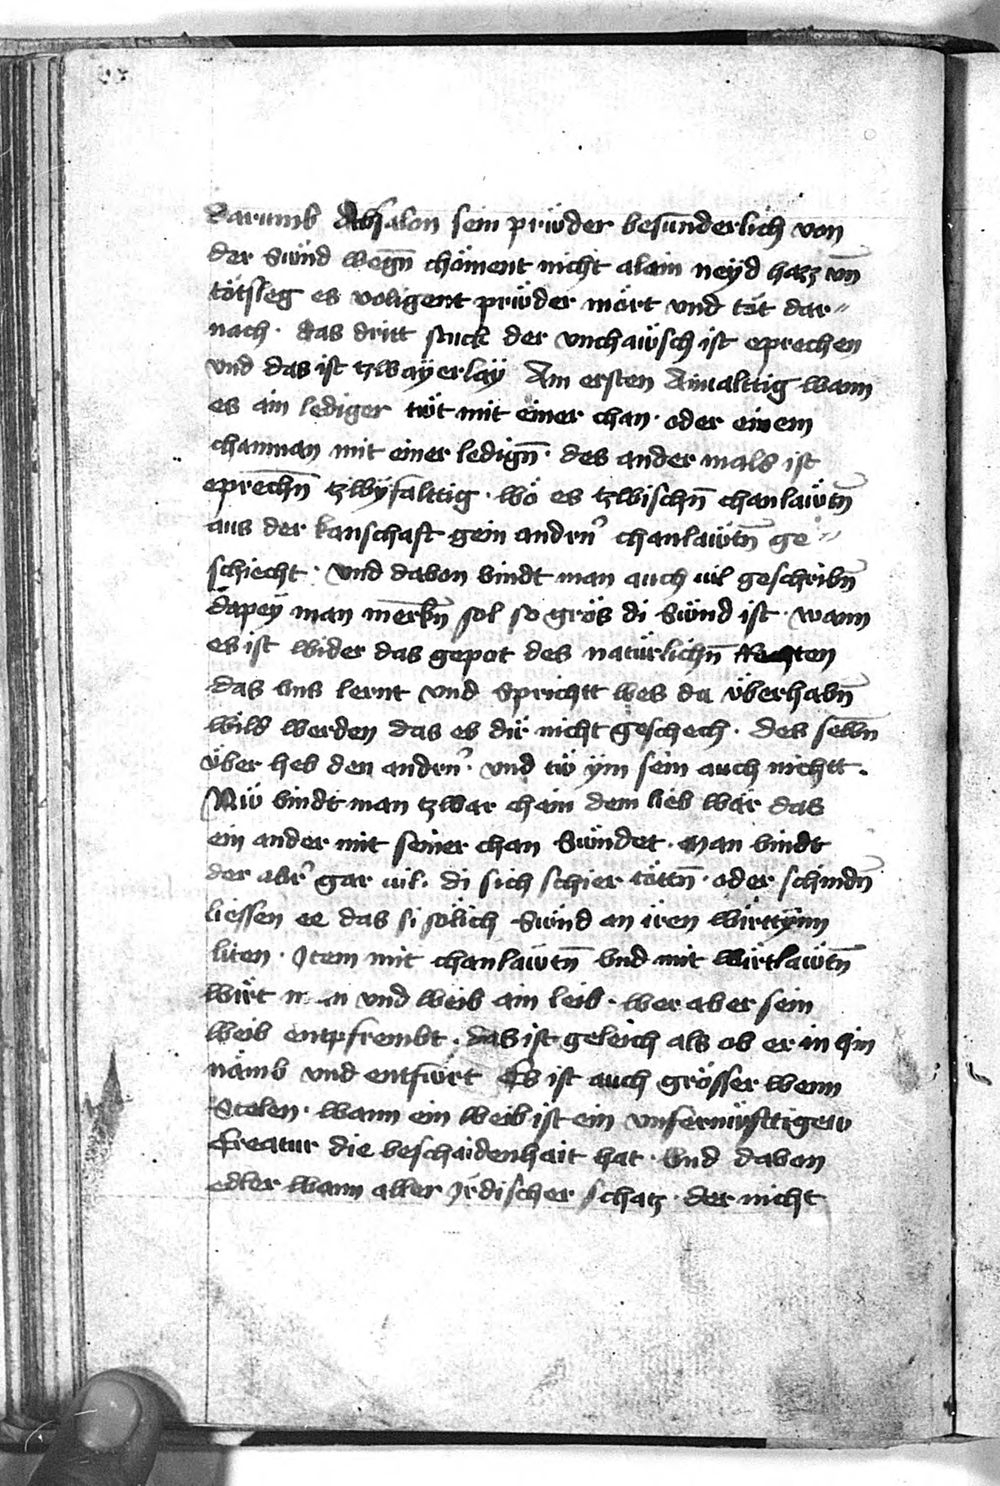 darumb Absalon sein prüder besunderlich von
der Sünd wegn̄ chöment nicht alain neÿd hazz vn̄
tötsleg es voligent prüder mört vnd töt dar〃
nach · das dritt stuck der vnchaüsch ist eprechen
vnd das ist tzwaÿerlaÿ Am ersten Ainualttig wann
es ain lediger tüt mit einer chan · oder einem
chanman mit einer ledign̄ · des ander mals ist
eprechn̄ tzwÿfalttig · wö es tzwischn̄ chanlaütn̄
aus der kanschaft gein andrn̉ chanlaütn̄ ge〃
schiecht · Vnd dauon vindt man auch uil geschribn̄
dapeÿ man merkn̄ sol so grös di Sünd ist · wann
es ist wider das gepot des natürlichn̄ Rechten
das vns lernt vnd Sprichtt wes du überhabn̄
wild werden das es dir nicht geschech · des selbn̄
über heb den andrn̉ · vnd tü ÿm sein auch nichtt .
Nü vindt man tzwar chain dem lieb wär das
ein ander mit seiner chan Sündet · Man vindt
der abr̉ gar uil · di sich schier töttn̄ · oder schindn̄
liessen ee das si sölich Sünd an iren wirttÿnn
liten · Item mit chanlaütn̄ vnd mit wirtlaütn̄
wirt man vnd weib ain leib · wer aber sein
weib entpfrembt · das ist geleich als ob er in hin
nämb vnd entfürt Es ist auch grösser wenn
Stelen · wann ein weib ist ein vnfernüfttigew
Creatur die beschaidenhait hat · Vnd dauon
edler wann aller Irdischer schatz · der nicht